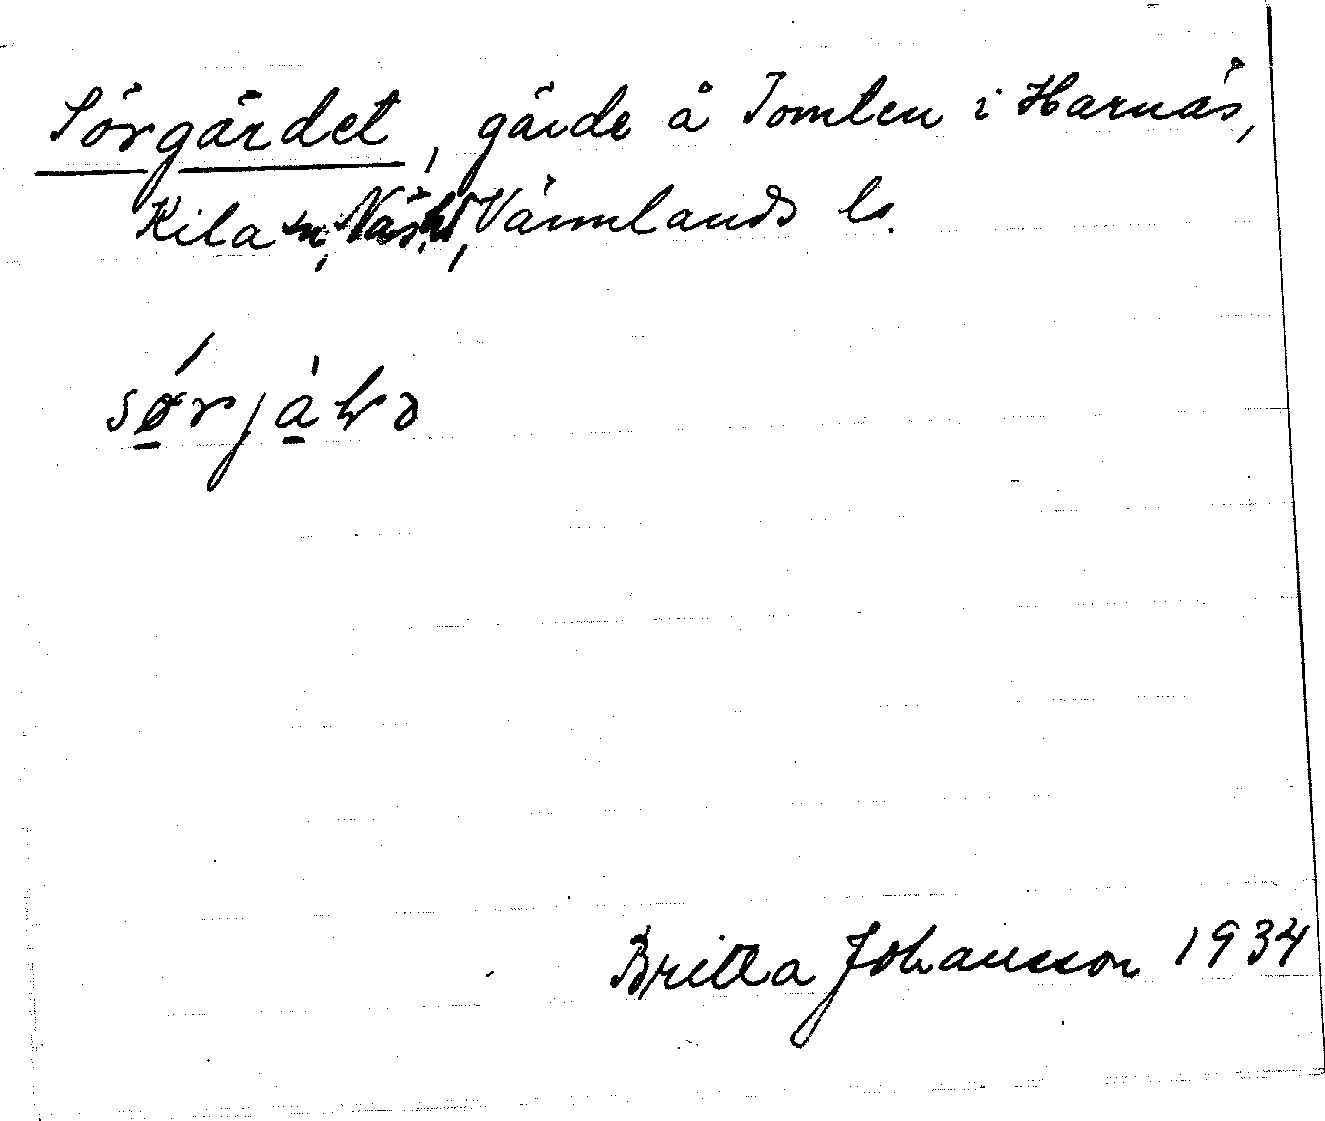 Sörgärdet, gärde å Tomten i Harnäs,
Kila sn, Näs hd, Värmlands l.
Britta Johansson 1934